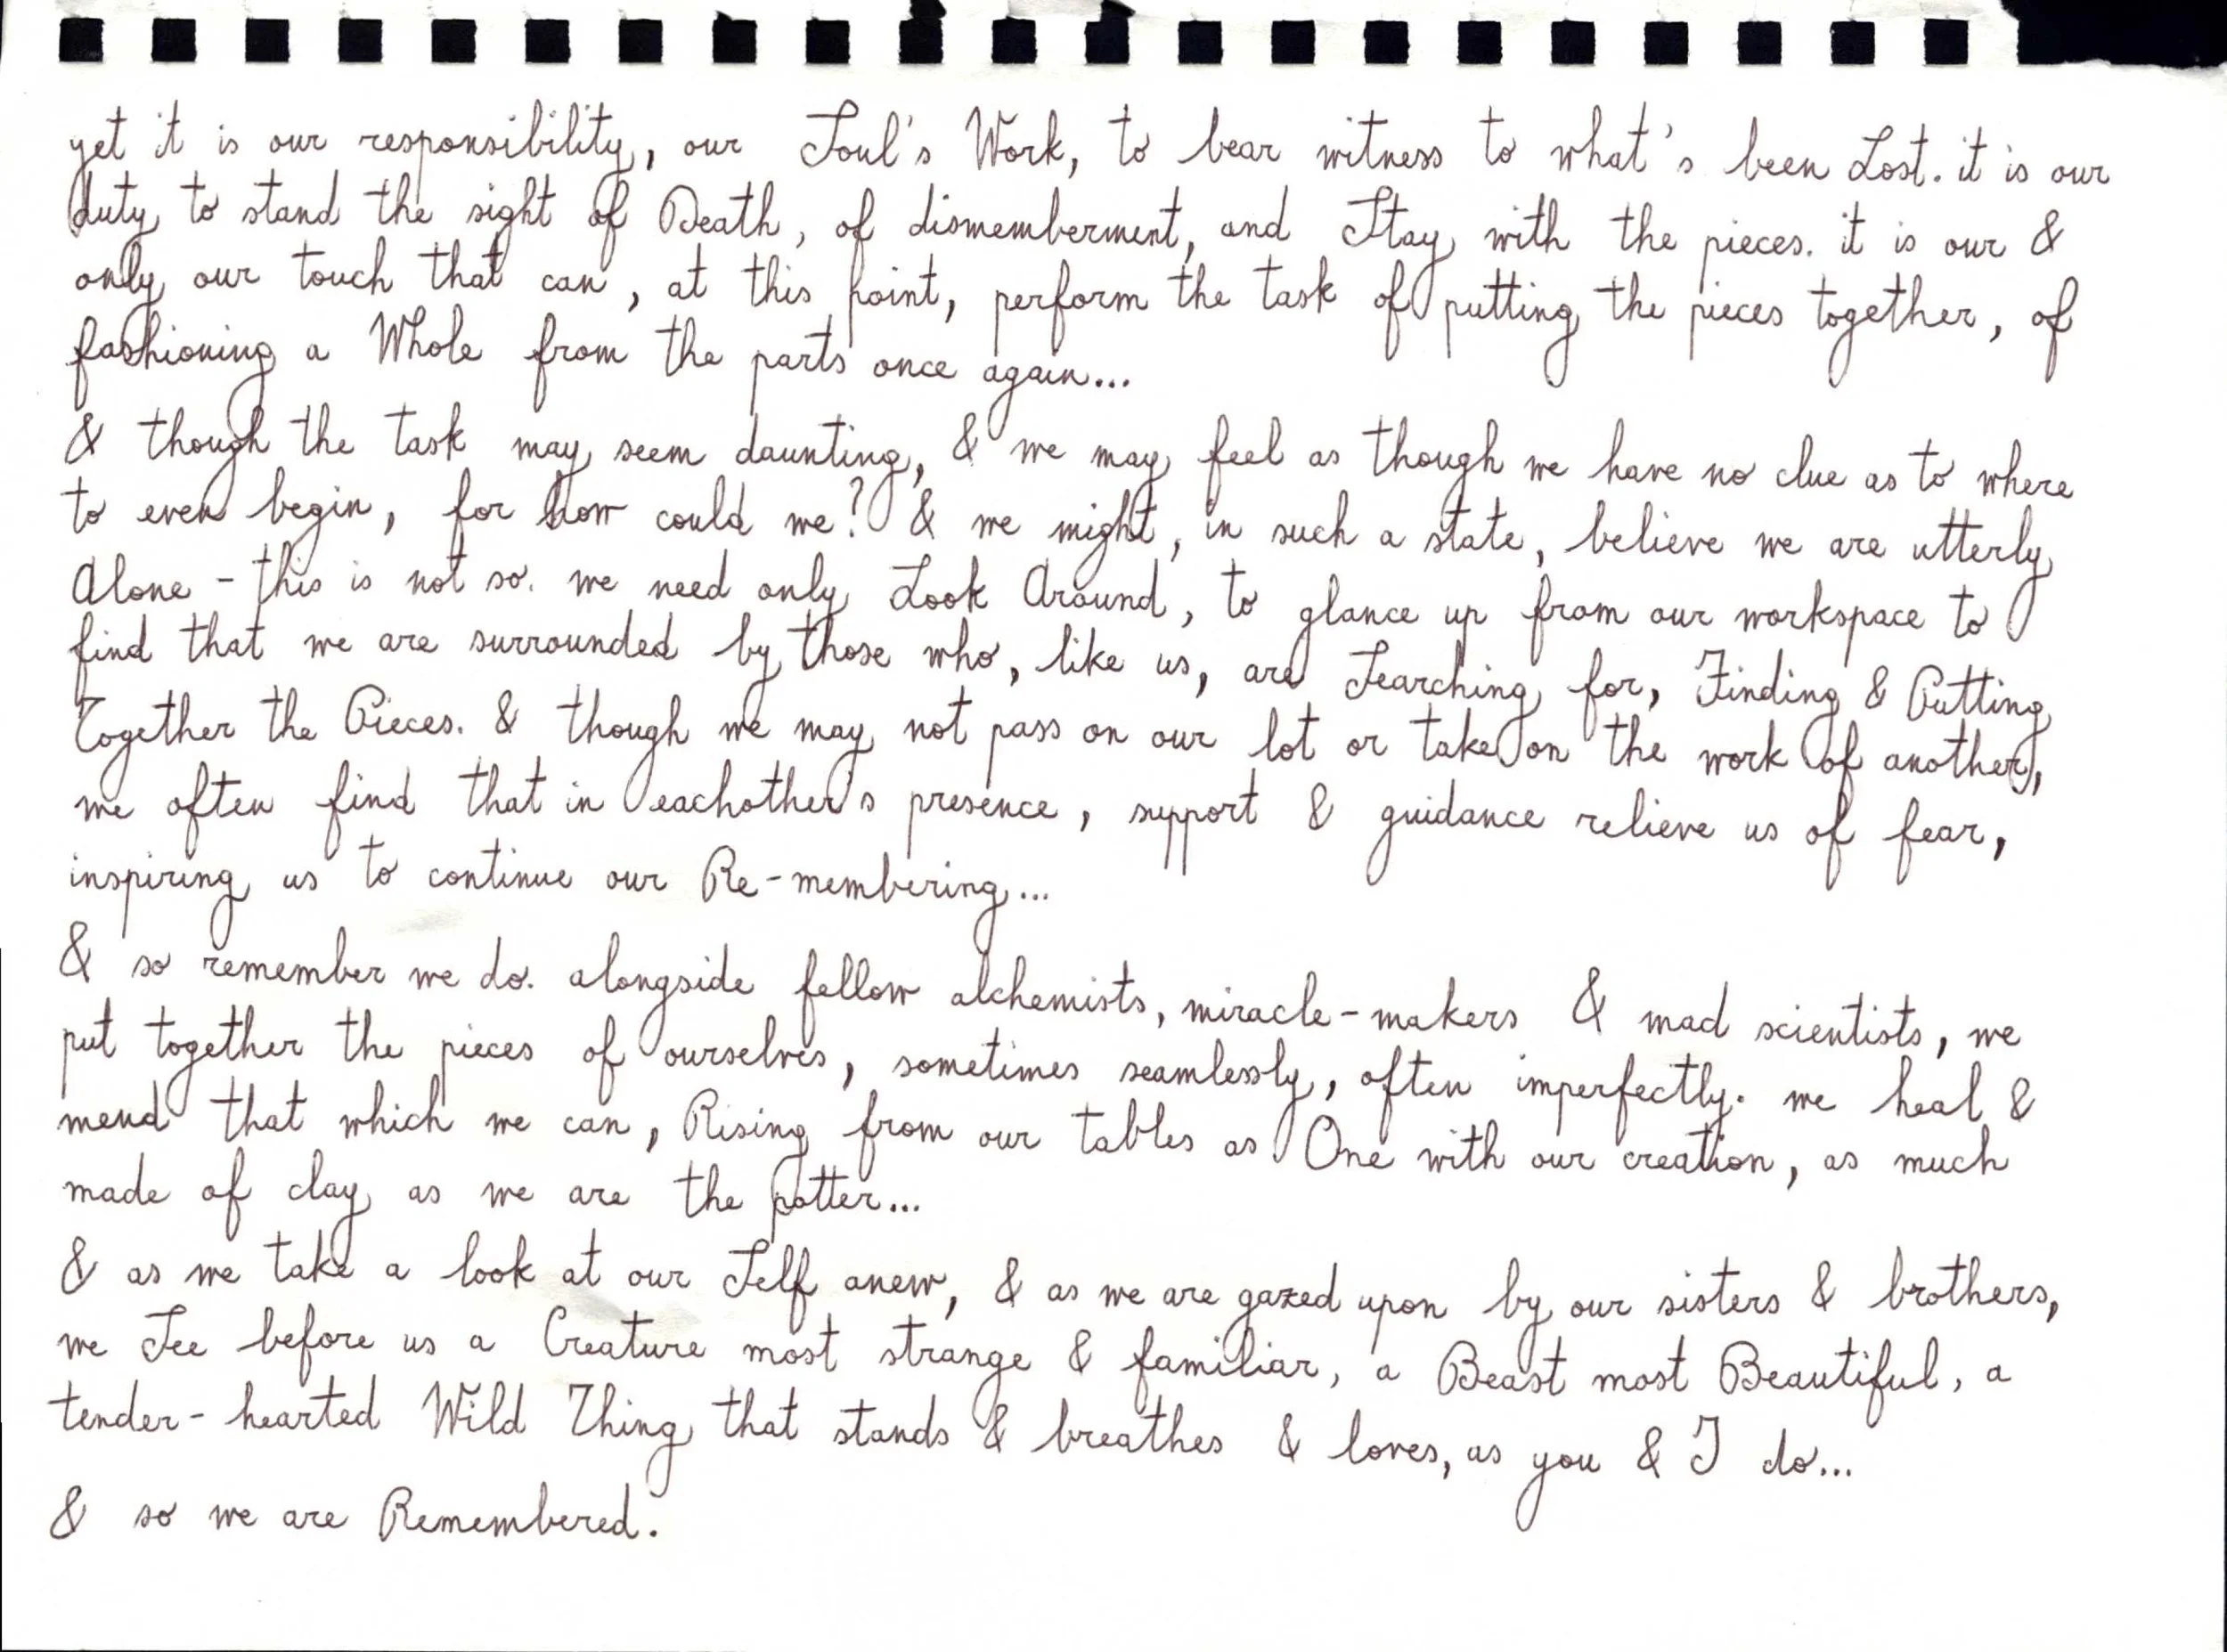 yet it is our responsibility, our Soul's Work, to bear witness to what's been Lost. it is our
duty to stand the sight of Death, of dismemberment, and Stay with the pieces. it is our &
only our touch that can, at this point, perform the task of putting the pieces together, of
fashioning a Whole from the parts once again...
& though the task may seem daunting, & we may feel as though we have no clue as to where
to even begin, for how could we? & we might, in such a state, believe we are utterly
Alone - this is not so. we need only Look Around, to glance up from our workspace to
find that we are surrounded by those who, like us, are Searching for, Finding & Putting
Together the Pieces. & though we may not pass on our lot or take on the work of another,
we often find that in eachother's presence, support & guidance relieve us of fear,
inspiring us to continue our Re-membering...
& so remember we do. alongside fellow alchemists, miracle-makers & mad scientists, we
put together the pieces of ourselves, sometimes seamlessly, often imperfectly. we heal &
mend that which we can, Rising from our tables as One with our creation, as much
made of clay as we are the potter...
& as we take a look at our Self anew, & as we are gazed upon by our sisters & brothers,
we See before us a Creature most strange & familiar, a Beast most Beautiful, a
tender-hearted Wild Thing that stands & breathes & loves, as you & I do...
& so we are Remembered.